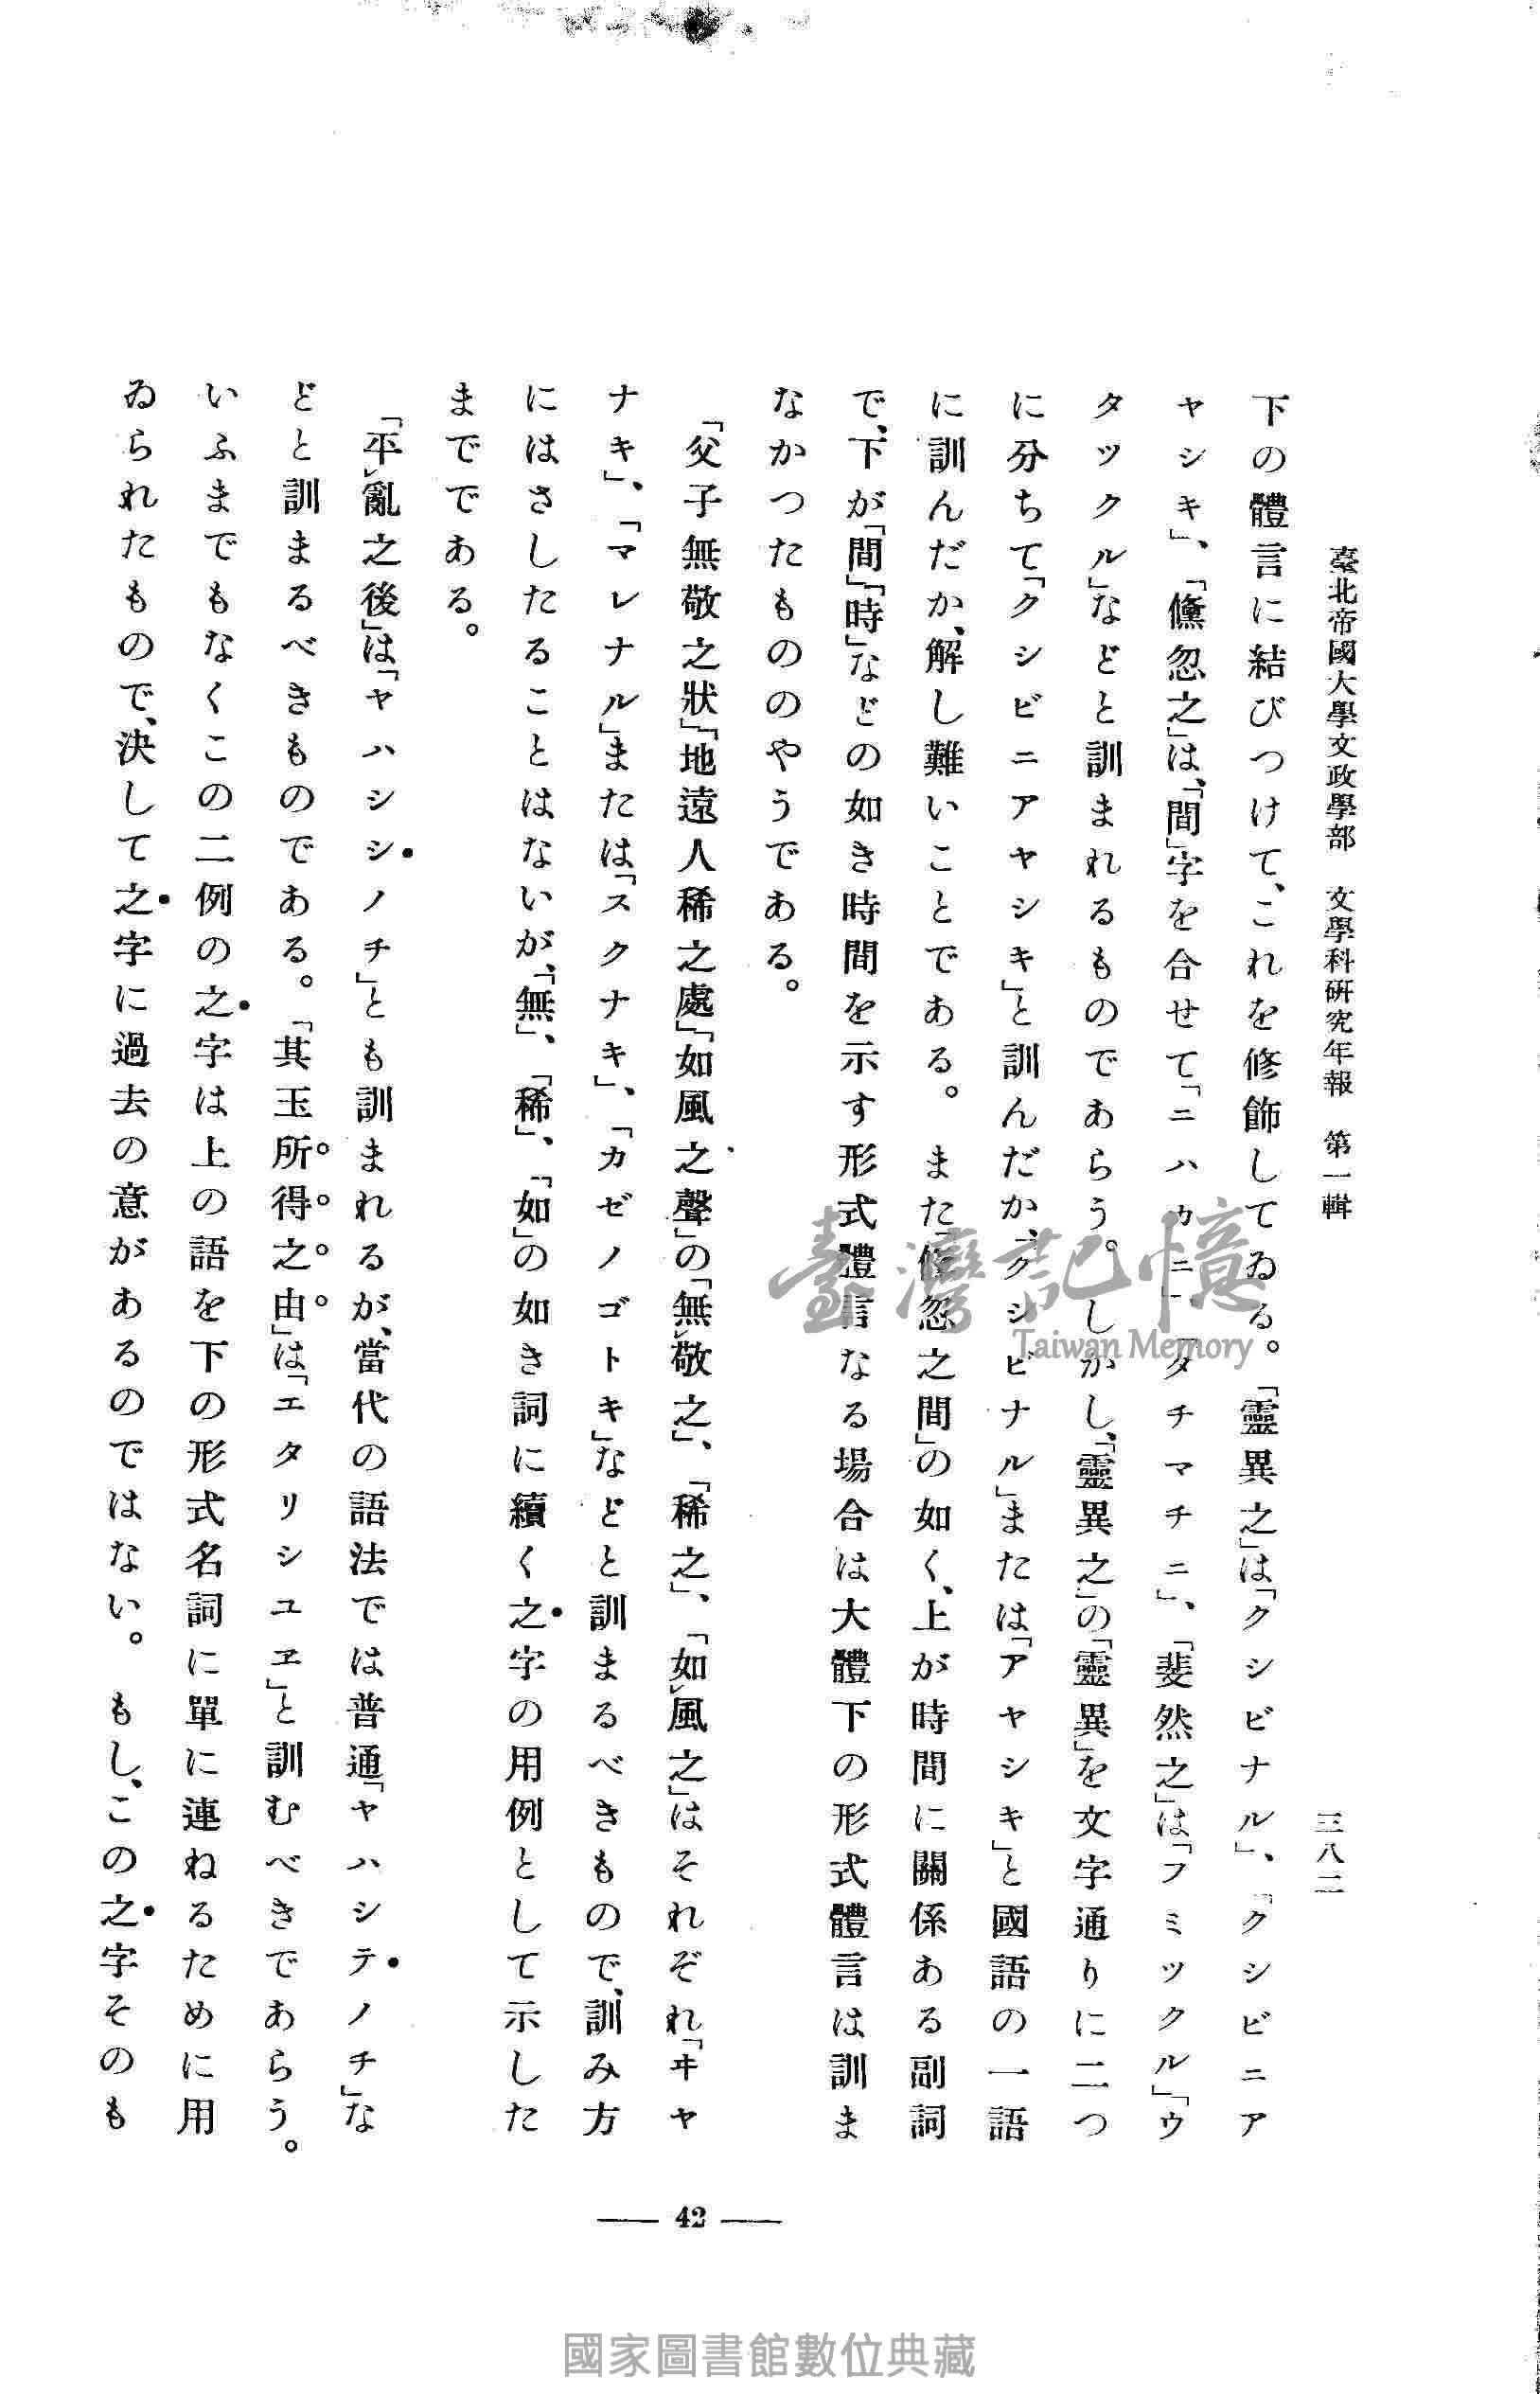 臺北帝國大學文政學部　文學科研究年報　第一輯　三八二
下の體言に結びつけて、これを修飾してゐる。「靈異之」は「クシビナル」、「クシビニア
ヤシキ」、「儵忽之」は、「間」字を合せて「ニハカニ」、「タチマチニ」、「斐然之」は「フミツクル」「ウ
タツクル」などと訓まれるものであらう。しかし、「靈異之」の「靈異」を文字通りに二つ
に分ちて「クシビニアヤシキ」と訓んだか、クシビナル」または「アヤシキ」と國語の一語
に訓んだか、解し難いことである。また「儵忽之間」の如く、上が時間に關係ある副詞
で、下が「間」「時」などの如き時間を示す形式體言なる場合は大體下の形式體言は訓ま
なかつたもののやうである。
「父子無敬之狀」「地遠人稀之處」「如風之聲」の「無レ敬之」、「稀之」、「如レ風之」はそれぞれ「ヰヤ
ナキ」、「マレナル」または「スクナキ」、「カゼノゴトキ」などと訓まるべきもので、訓み方
にはさしたることはないが、「無」、「稀」、「如」の如き詞に續く之字の用例として示した
までである。
「平レ亂之後」は「ヤハシシノチ」とも訓まれるが、當代の語法では普通「ヤハシテノチ」な
どと訓まるべきものである。「其玉所得之由」は「エタリシユヱ」と訓むべきであらう。
いふまでもなくこの二例の之字は上の語を下の形式名詞に單に連ねるために用
ゐられたもので、決して之字に過去の意があるのではない。もし、この之字そのも
— 42 —
臺灣記憶
Taiwan Memory
國家圖書館數位典藏